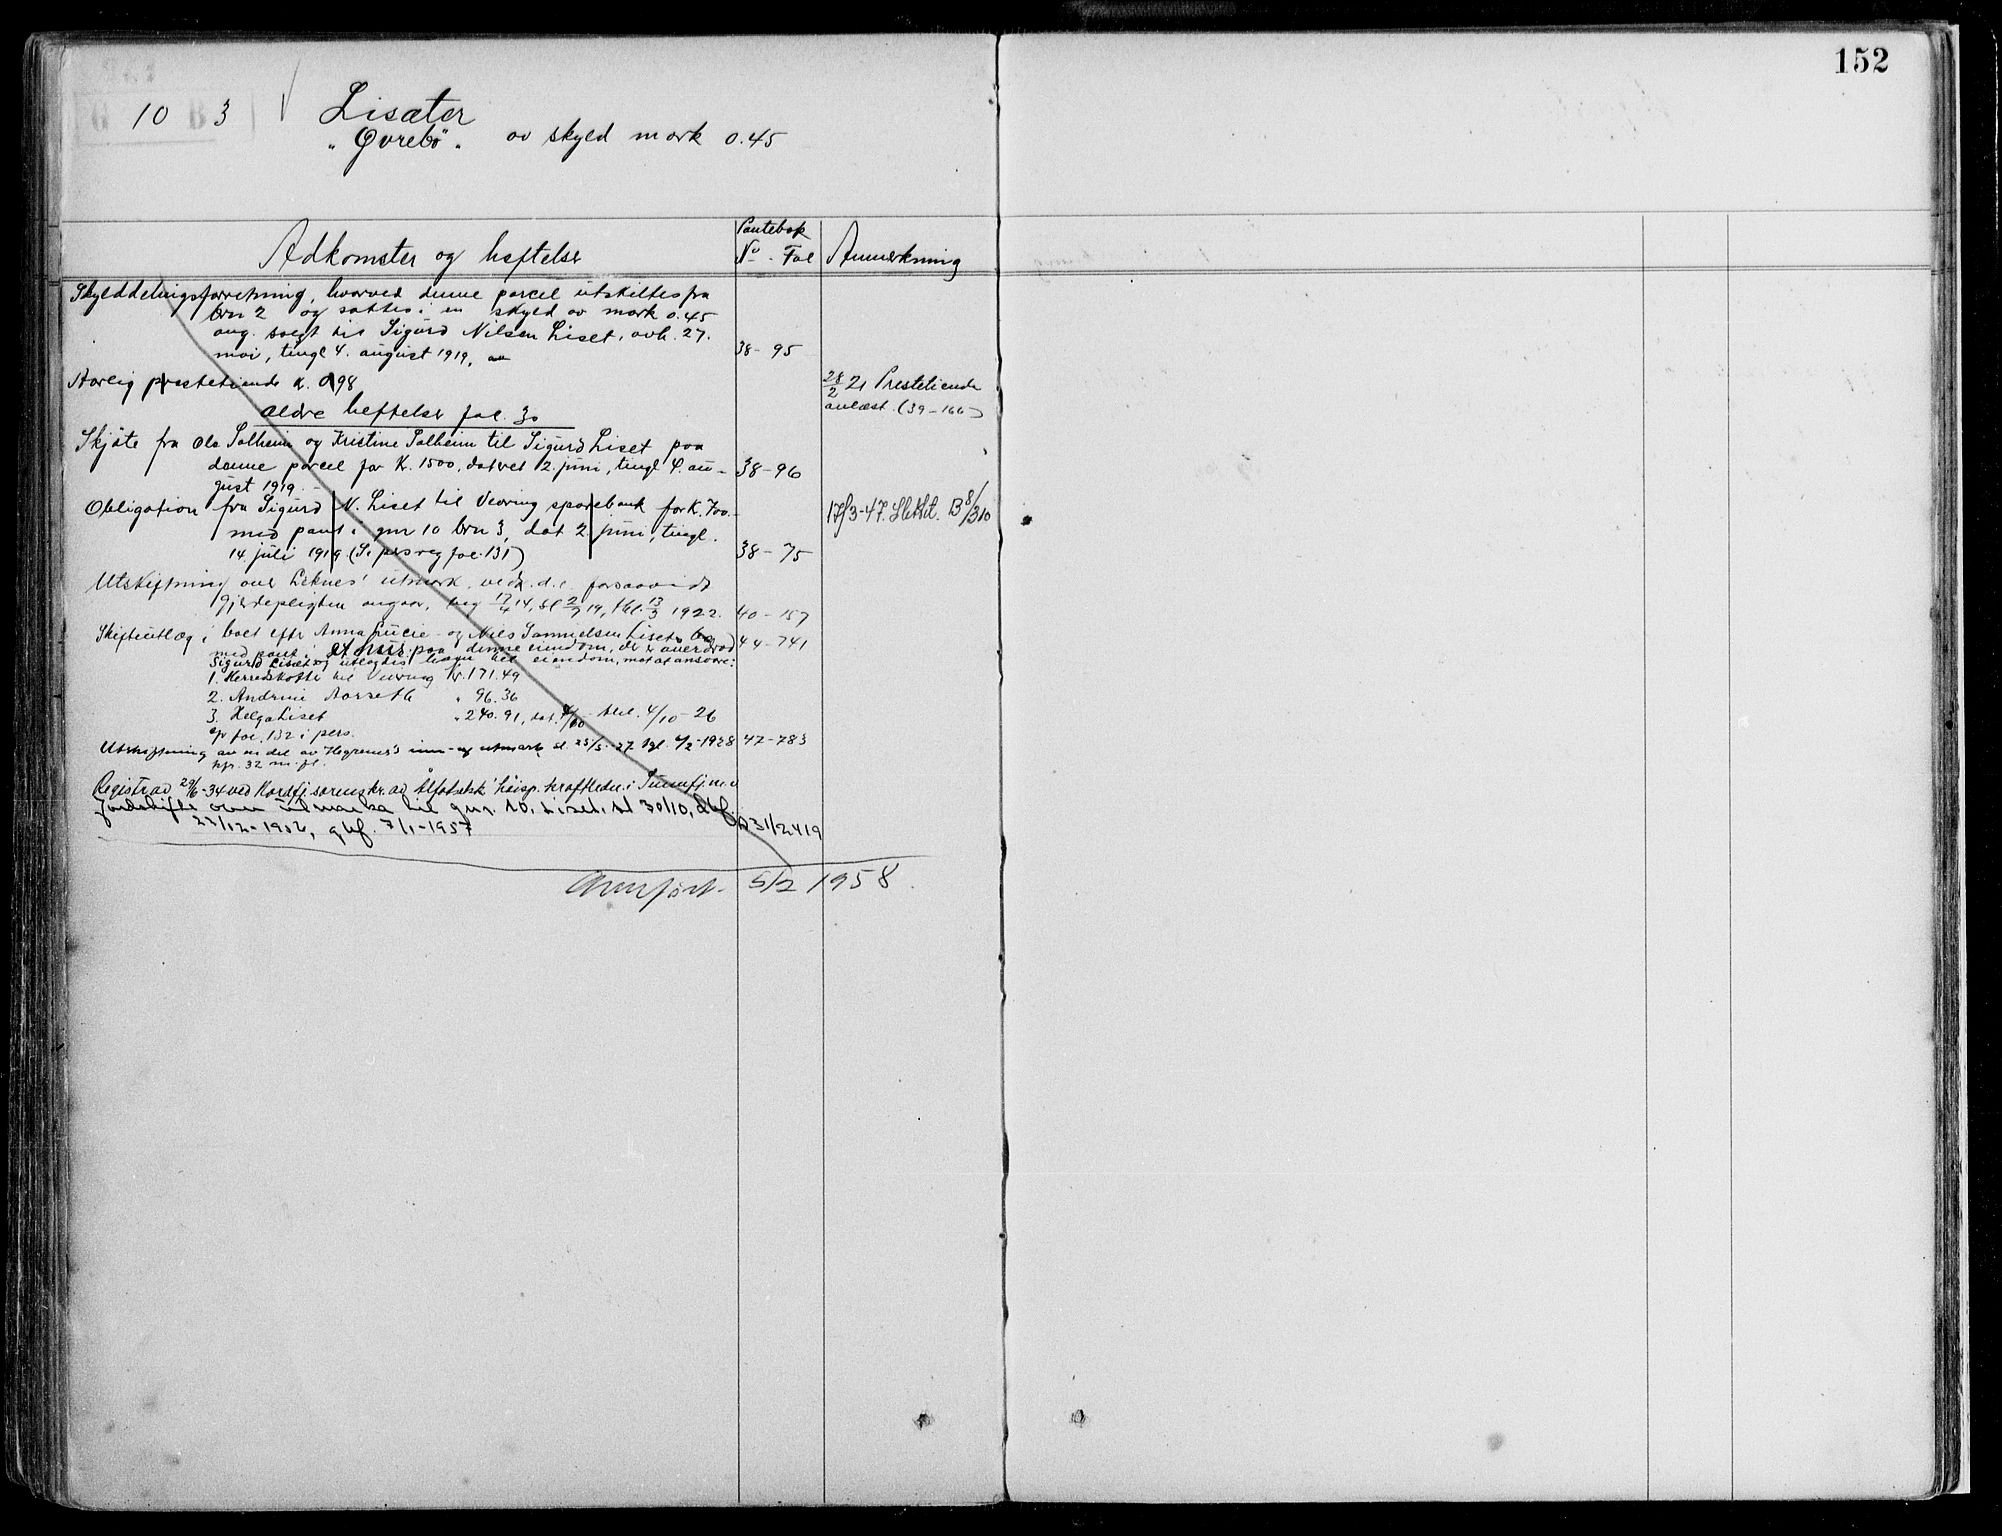 152
G 10 B 3
Lisæter
"Øvrebö" av skyld mark 0.45
Adkomster og heftelser
Pantebok
No - Fol
Anmerkning
Skylddelingsforretning, hvorved denne parcel utskiltes fra
brn 2 og sattes i en skyld av mark 0.45
ang. solgt til Sigurd Nilsen Liset, avh. 27.
mai, tingl 4. august 1919, 38 - 95
Aarlig prestetiende K. 0.98
28/2 21 Prestetiende
avløst (39-166)
Ældre heftelser fol. 30
Skjöte fra Ole Solheim og Kristine Solheim til Sigurd Liset paa
denne parcel for K. 1500, datert 2. juni, tingl 4. au- 38-96
gust 1919.
Obligation fra Sigurd N. Liset til Vevring sparebank for K. 700.-
17/3-47. Slettet. B 8/310
med pant i gnr 10 brn 3, dat 2 juni, tingl.
14. juli 1919. (Se pers reg fol. 131) 38 - 75
Utskiftning over Leknes' utmark, ved. d.e. forsaavidt
gjerdepligten angaar, beg 17/4 14, sl 2/7 19, tgl. 13/3 1922. 40-157
Skifteutlæg i boet eftr Anna Lucie og Nils Samuelsen Liset 44-741
med pant i et hus paa denne eiendom, der er overdrad
Sigurd Liset og utlagdes ham hel eiendom, mot at ansvare:
1. Herredskasse til Vevring Kr. 171.49
2. Andrine Aarseth " 96.36
3. Helga Liset " 240.91, dat. 4/10 tgl. 4/10-26
cfr fol. 132 i pers.
Utskiftning av en del av Hegrenes's inn- og utmark sl 25/5-27 tgl. 6/2-1928 47-783
kfr. 32 m. fl.
Registrad 29/6-34 ved Nordfj sorenskr. ad høisp. kraftledn. i Sunnfj. m.v
Jordskifte over utmarka til gnr. 10, Liset, sl 30/10, dbf.
22/12-1956, gbf. 7/1-1957 D31/2419
Overført 5/2 1958